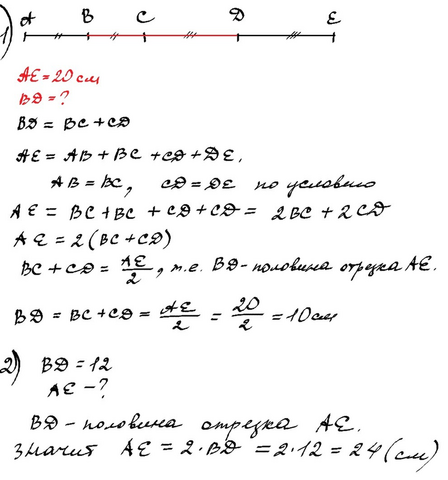 A B C D E
1)
AE = 20 см
BD = ?
BD = BC + CD
AE = AB + BC + CD + DE,
AB = BC, CD = DE по условию
AE = BC + BC + CD + CD = 2BC + 2CD
AE = 2(BC + CD)
BC + CD = AE/2, т.е. BD - половина отрезка AE.
BD = BC + CD = AE/2 = 20/2 = 10 см
2) BD = 12
AE - ?
BD - половина отрезка AE.
значит AE = 2·BD = 2·12 = 24 (см)